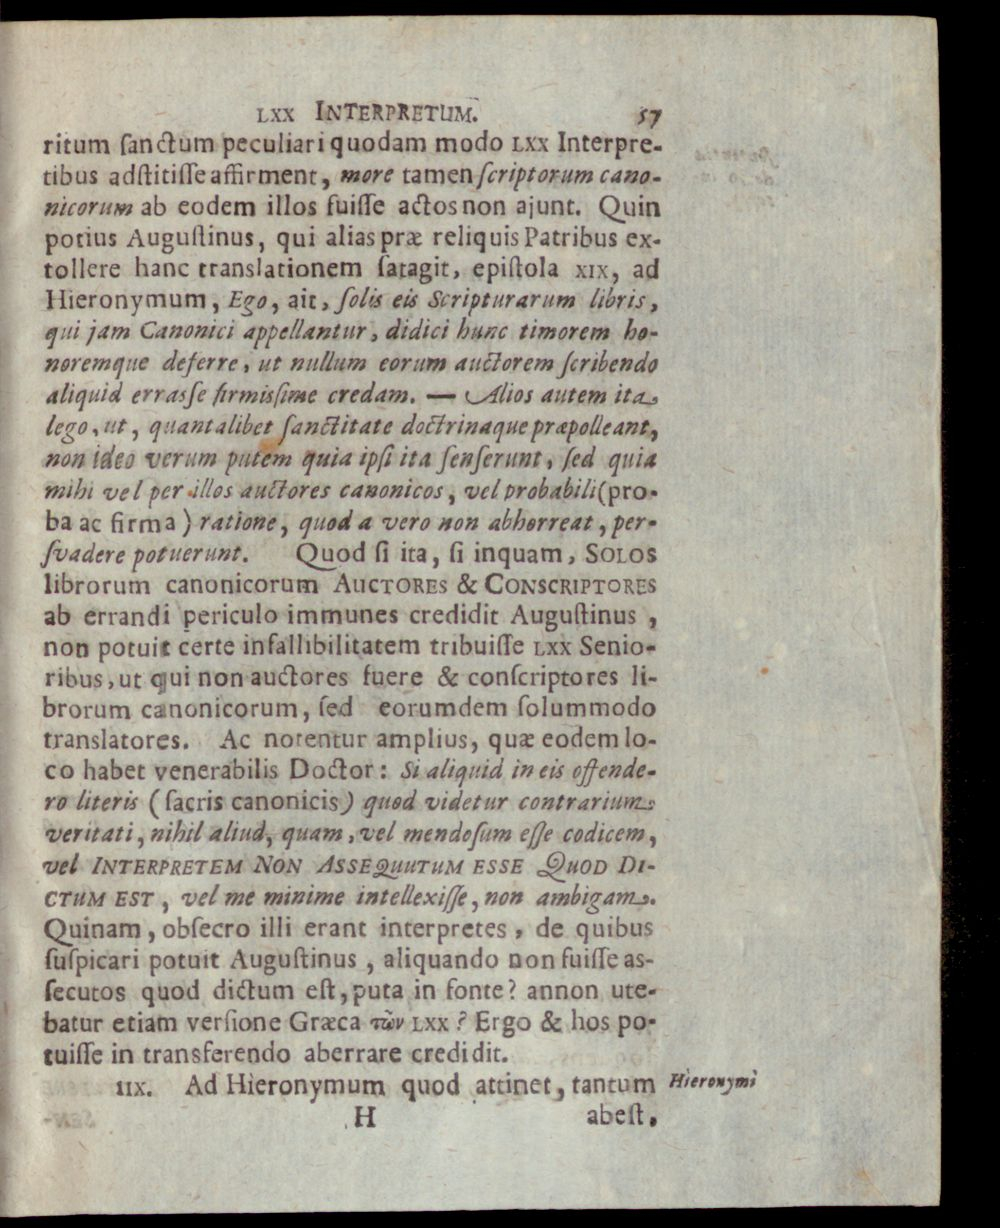 LXX INTERPRETUM. 57
ritum ſanctum peculiari quodam modo LXX Interpre-
tibus adſtitiſſe affirment, more tamen ſcriptorum cano-
nicorum ab eodem illos fuiſſe actos non ajunt. Quin
potius Auguſtinus, qui alias præ reliquis Patribus ex-
tollere hanc translationem ſatagit, epiſtola XIX, ad
Hieronymum, Ego, ait, ſolis eis Scripturarum libris,
qui jam Canonici appellantur, didici hunc timorem ho-
noremque deferre, ut nullum eorum auctorem ſcribendo
aliquid erraſſe firmiſſime credam. — Alios autem ita
lego, ut, quantalibet ſanctitate doctrinaque præpolleant,
non ideo verum putem quia ipſi ita ſenſerunt, ſed quia
mihi vel per illos auctores canonicos, vel probabili (pro-
ba ac firma) ratione, quod a vero non abhorreat, per-
ſvadere potuerunt. Quod ſi ita, ſi inquam, SOLOS
librorum canonicorum AUCTORES & CONSCRIPTORES
ab errandi periculo immunes credidit Auguſtinus,
non potuit certe infallibilitatem tribuiſſe LXX Senio-
ribus, ut qui non auctores fuere & conſcriptores li-
brorum canonicorum, ſed eorumdem ſolummodo
translatores. Ac notentur amplius, quæ eodem lo-
co habet venerabilis Doctor: Si aliquid in eis offende-
ro literis (ſacris canonicis) quod videtur contrarium
veritati, nihil aliud, quam, vel mendoſum eſſe codicem,
vel INTERPRETEM NON ASSEQUUTUM ESSE QUOD DI-
CTUM EST, vel me minime intellexiſſe, non ambigam.
Quinam, obſecro illi erant interpretes, de quibus
ſuſpicari potuit Auguſtinus, aliquando non fuiſſe as-
ſecutos quod dictum eſt, puta in fonte? annon ute-
batur etiam verſione Græca τῶν LXX? Ergo & hos po-
tuiſſe in transferendo aberrare credidit.
IIX. Ad Hieronymum quod attinet, tantum Hieronymi
H abeſt,